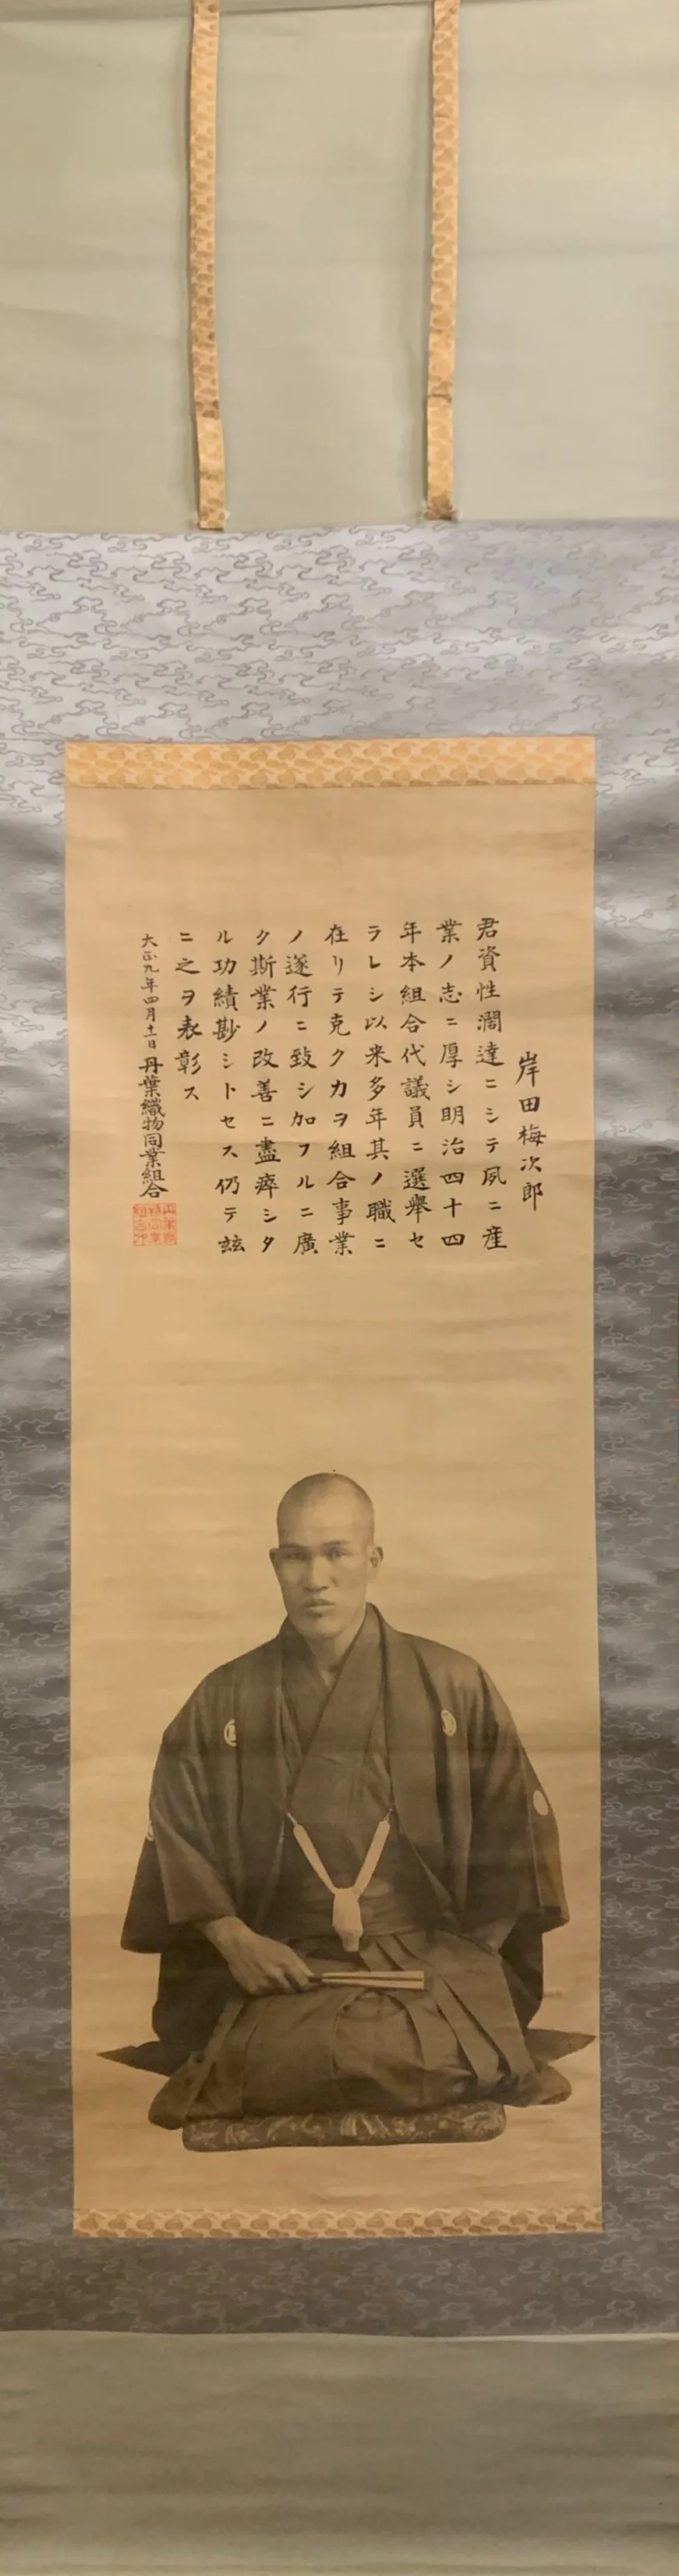 岸田梅次郎
君資性濶達ニシテ夙ニ産
業ノ志ニ厚シ明治四十四
年本組合代議員ニ選擧セ
ラレシ以来多年其ノ職ニ
在リテ克ク力ヲ組合事業
ノ遂行ニ致シ加フルニ廣
ク斯業ノ改善ニ盡瘁シタ
ル功績尠シトセス仍テ玆
ニ之ヲ表彰ス
大正九年四月十一日 丹葉織物同業組合